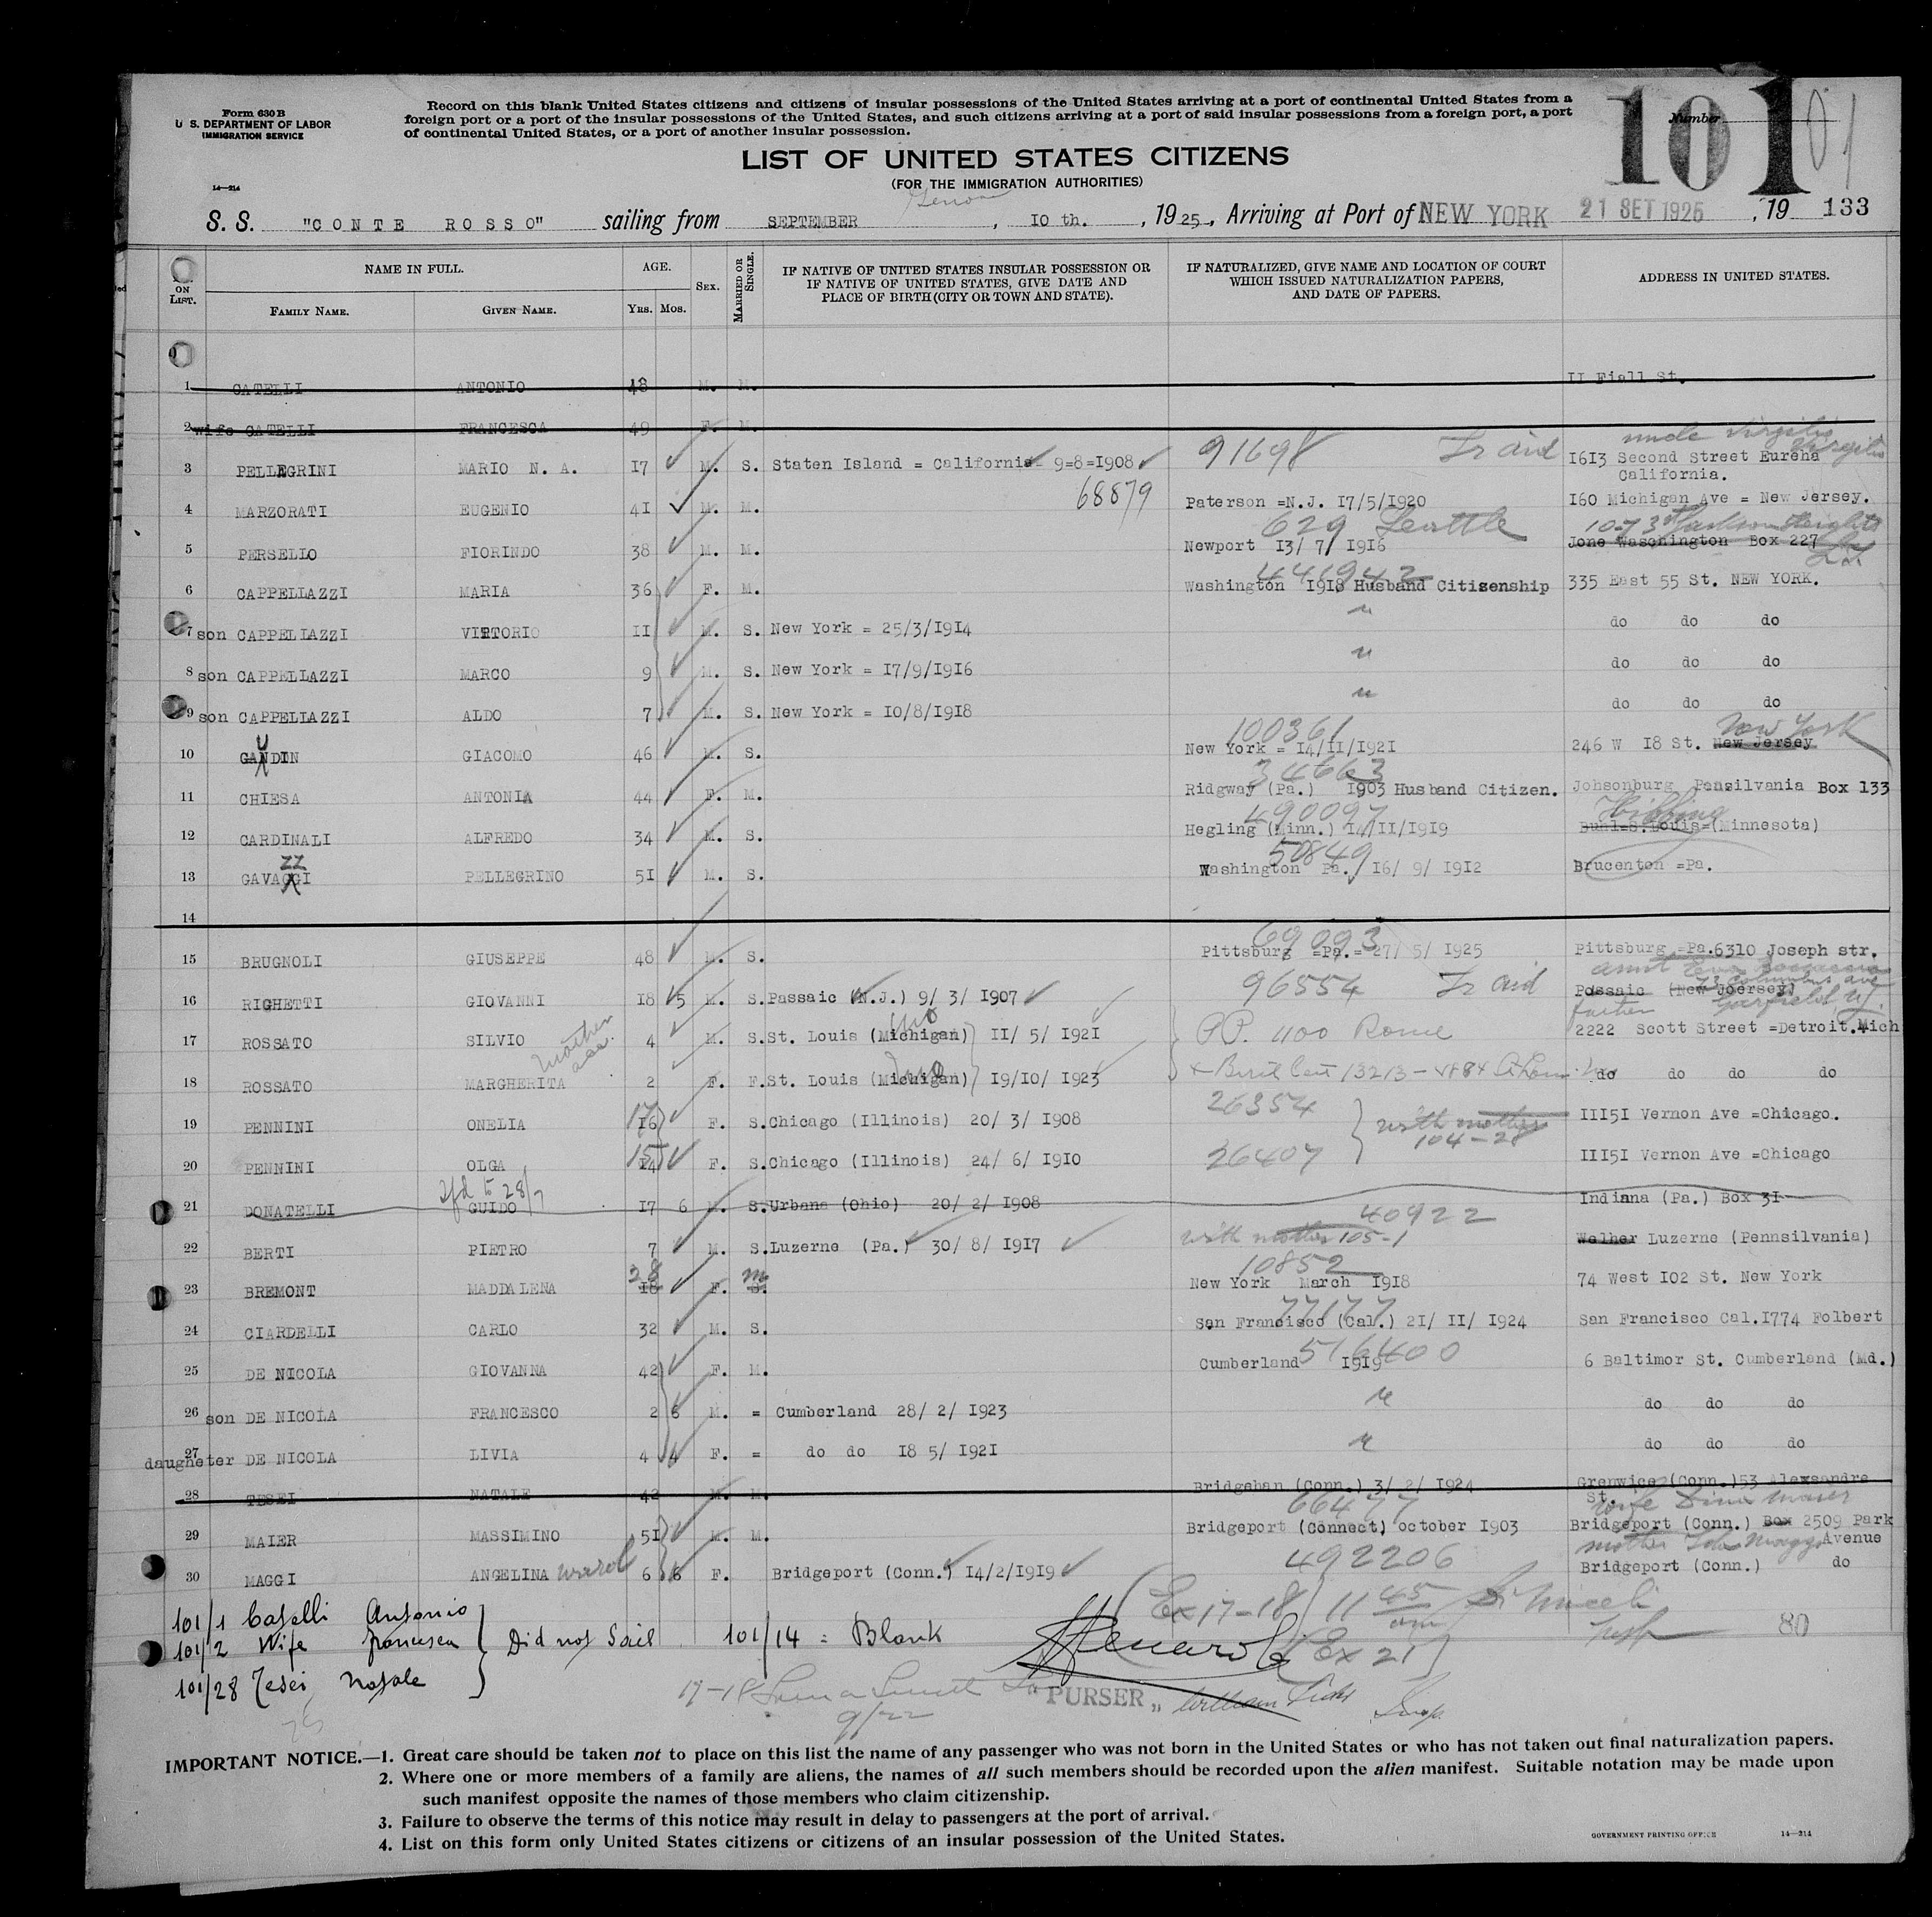 Form 630 B
U. S. DEPARTMENT OF LABOR
IMMIGRATION SERVICE
14—214
Record on this blank United States citizens and citizens of insular possessions of the United States arriving at a port of continental United States from a
foreign port or a port of the insular possessions of the United States, and such citizens arriving at a port of said insular possessions from a foreign port, a port
of continental United States, or a port of another insular possession.
Number
101
01
LIST OF UNITED STATES CITIZENS
(FOR THE IMMIGRATION AUTHORITIES)
Genoa
S. S. "CONTE ROSSO" sailing from SEPTEMBER, 10 th., 1925, Arriving at Port of NEW YORK 21 SET 1925, 19 133
ON LIST.
NAME IN FULL.
FAMILY NAME.
GIVEN NAME.
AGE.
YRS. MOS.
SEX.
MARRIED OR SINGLE.
IF NATIVE OF UNITED STATES INSULAR POSSESSION OR
IF NATIVE OF UNITED STATES, GIVE DATE AND
PLACE OF BIRTH (CITY OR TOWN AND STATE).
IF NATURALIZED, GIVE NAME AND LOCATION OF COURT
WHICH ISSUED NATURALIZATION PAPERS,
AND DATE OF PAPERS.
ADDRESS IN UNITED STATES.
1 CATELLI ANTONIO 48 M. M. II Fiall St.
2 wife CATELLI FRANCESCA 49 F. M.
uncle Virgilio
3 PELLEGRINI MARIO N. A. 17 M. S. Staten Island = California 9-8=1908 91698 1613 Second Street Eureha
California.
68879
4 MARZORATI EUGENIO 41 M. M. Paterson =N.J. 17/5/1920 160 Michigan Ave = New Jersey.
629 Seattle 10-73 Jackson Heights
5 PERSELLO FIORINDO 38 M. M. Newport 13/ 7/ 1916 Jone Waschington Box 227 L.I.
441942
6 CAPPELLAZZI MARIA 36 F. M. Washington 1918 Husband Citizenship 335 East 55 St. NEW YORK.
7 son CAPPELLAZZI VITTORIO 11 M. S. New York = 25/3/1914 " do do do
8 son CAPPELLAZZI MARCO 9 M. S. New York = 17/9/1916 " do do do
9 son CAPPELLAZZI ALDO 7 M. S. New York = 10/8/1918 " do do do
100361 New York
10 GANDIN U GIACOMO 46 M. S. New York = 14/11/1921 246 W 18 St. New Jersey
34663
11 CHIESA ANTONIA 44 F. M. Ridgway (Pa.) 1903 Husband Citizen. Johsonburg Pensilvania Box 133
490097 Hibbing
12 CARDINALI ALFREDO 34 M. S. Hegling (Minn.) 14/11/1919 Buhl=S.Louis=(Minnesota)
ZZ 50849
13 GAVAGGI PELLEGRINO 51 M. S. Washington Pa. 16/ 9/ 1912 Brucenton =Pa.
14
69093
15 BRUGNOLI GIUSEPPE 48 M. S. Pittsburg =Pa.= 27/ 5/ 1925 Pittsburg =Pa.6310 Joseph str.
aunt
16 RIGHETTI GIOVANNI 18 5 M. S. Passaic (N.J.) 9/ 3/ 1907 96554 Possaic (New Joersey)
father Garfield NJ.
17 ROSSATO SILVIO 4 M. S. St. Louis (Michigan) 11/ 5/ 1921 PP. 1100 Rome 2222 Scott Street =Detroit.Mich
mother
18 ROSSATO MARGHERITA 2 F. F. St. Louis (Michigan) 19/10/ 1923 do do do do
19 PENNINI ONELIA 16 17 F. S. Chicago (Illinois) 20/ 3/ 1908 26354 11151 Vernon Ave =Chicago.
with mother
104-28
20 PENNINI OLGA 14 15 F. S. Chicago (Illinois) 24/ 6/ 1910 26407 11151 Vernon Ave =Chicago
Tfd to 28/7
21 DONATELLI GUIDO 17 6 M. S. Urbana (Ohio) 20/ 2/ 1908 Indiana (Pa.) Box 31
40922
22 BERTI PIETRO 7 M. S. Luzerne (Pa.) 30/ 8/ 1917 with mother 105-1 Welher Luzerne (Pennsilvania)
28 m 10852
23 BREMONT MADDALENA 18 F. S. New York March 1918 74 West 102 St. New York
77177
24 CIARDELLI CARLO 32 M. S. San Francisco (Cal.) 21/ 11/ 1924 San Francisco Cal.1774 Folbert
25 DE NICOLA GIOVANNA 42 F. M. Cumberland 1919 516400 6 Baltimor St. Cumberland (Md.)
26 son DE NICOLA FRANCESCO 2 6 M. = Cumberland 28/ 2/ 1923 " do do do
27 daugheter DE NICOLA LIVIA 4 4 F. = do do 18 5/ 1921 " do do do
28 TESEI NATALE 42 M. M. Bridgehan (Conn.) 3/ 2/ 1924 Grenwice (Conn.)53 Alexsandre
St.
66477 wife
29 MAIER MASSIMINO 51 M. M. Bridgeport (Connect) october 1903 Bridgeport (Conn.) Box 2509 Park
Avenue
492206 mother
30 MAGGI ANGELINA 6 6 F. Bridgeport (Conn.) 14/2/1919 Bridgeport (Conn.) do
Ex 17-18 11 45 am
101/1 Catelli Antonio
101/2 Wife francesca Did not Sail 101/14 = Blank
Ex 21
80
101/28 Tesei Natale
17-18
9/22
"PURSER"
William
Insp.
IMPORTANT NOTICE.—1. Great care should be taken not to place on this list the name of any passenger who was not born in the United States or who has not taken out final naturalization papers.
2. Where one or more members of a family are aliens, the names of all such members should be recorded upon the alien manifest. Suitable notation may be made upon
such manifest opposite the names of those members who claim citizenship.
3. Failure to observe the terms of this notice may result in delay to passengers at the port of arrival.
4. List on this form only United States citizens or citizens of an insular possession of the United States.
GOVERNMENT PRINTING OFFICE 14—214